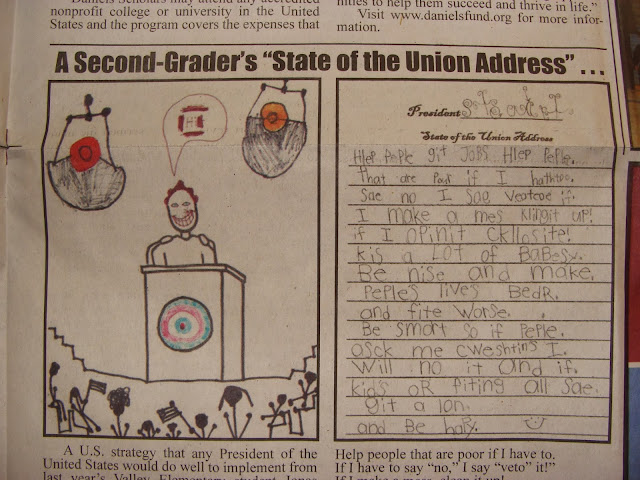 Daniels Scholars may attend any accredited
nonprofit college or university in the United
States and the program covers the expenses that
nities to help them succeed and thrive in life."
Visit www.danielsfund.org for more infor-
mation.
A Second-Grader's "State of the Union Address" . . .
HI
President
State of the Union Address
Hlep Peple git Jobs. Hlep Peple.
That are Poor if I haftoo.
Sae no I Sae Veotoe it.
I make a mes klingit up!
if I opinit ckllosite!
kis a LOT of BaBesy.
Be nise and make.
Peples lives Bedr.
and fite Worse.
Be Smart so if Peple.
asck me cweshtins I.
Will no it and if.
kids or fiting all Sae.
git a lon.
and Be hapy.
A U.S. strategy that any President of the
United States would do well to implement from
last year's Valley Elementary student Jonas
Help people that are poor if I have to.
If I have to say "no," I say "veto" it!"
If I make a mess, clean it up!